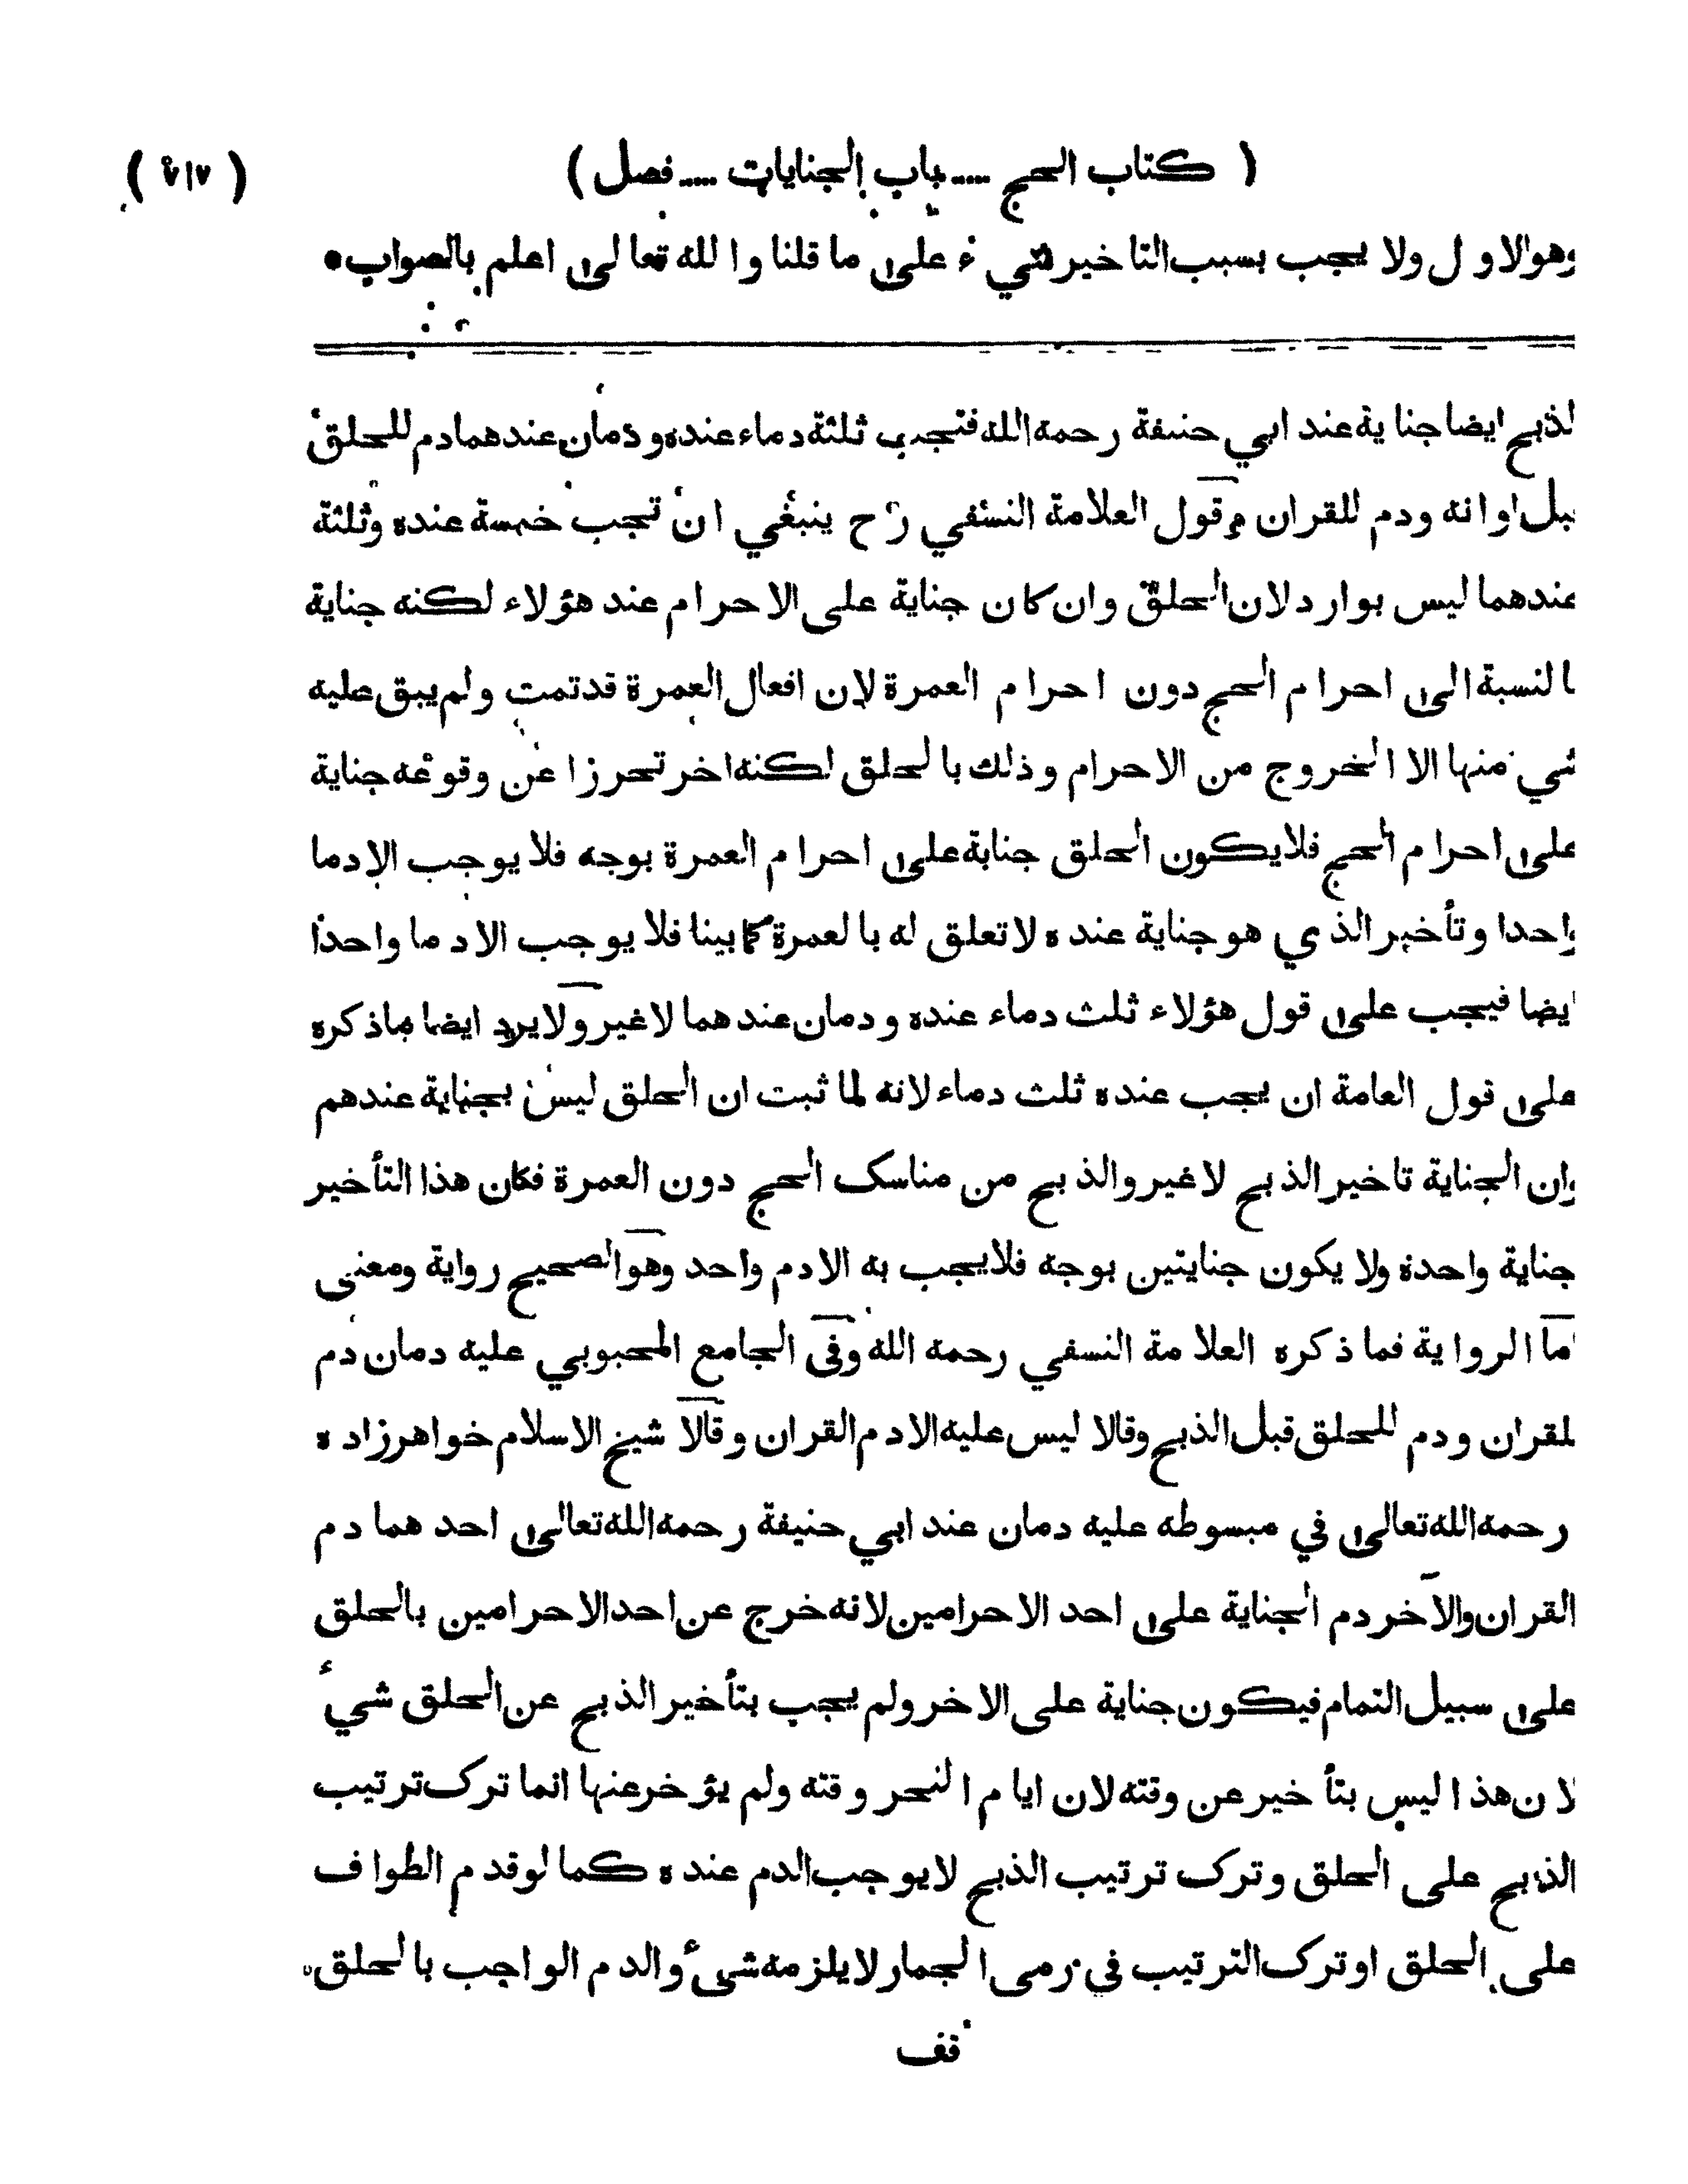 ( كتاب الحج ..... باب الجنايات ..... فصل )
وهو الاول ولا يجب بسبب التاخير شيء على ما قلنا والله تعالى اعلم بالصواب •
لذبح ايضا جناية عند ابي حنيفة رحمه الله فتجب ثلثة دماء عنده ودمان عندهما دم للحلق
بل اوانه ودم للقران وقول العلامة النسفي رح ينبغي ان تجب خمسة عنده وثلثة
عندهما ليس بوارد لان الحلق وان كان جناية على الاحرام عند هؤلاء لكنه جناية
بالنسبة الى احرام الحج دون احرام العمرة لان افعال العمرة قد تمت ولم يبق عليه
شي منها الا الخروج من الاحرام وذلك بالحلق لكنه اخر تحرزا عن وقوعه جناية
على احرام الحج فلا يكون الحلق جناية على احرام العمرة بوجه فلا يوجب الا دما
واحدا وتأخير الذي هو جناية عنده لا تعلق له بالعمرة كما بينا فلا يوجب الا دما واحدا
ايضا فيجب على قول هؤلاء ثلث دماء عنده ودمان عندهما لا غير ولا يرد ايضا ما ذكره
على قول العامة ان يجب عنده ثلث دماء لانه لما ثبت ان الحلق ليس بجناية عندهم
وان الجناية تاخير الذبح لا غير والذبح من مناسك الحج دون العمرة فكان هذا التأخير
جناية واحدة ولا يكون جنايتين بوجه فلا يجب به الا دم واحد وهو الصحيح رواية ومعنى
اما الرواية فما ذكره العلامة النسفي رحمه الله وفى الجامع المحبوبي عليه دمان دم
للقران ودم للحلق قبل الذبح وقالا ليس عليه الا دم القران وقالا شيخ الاسلام خواهرزاده
رحمه الله تعالى في مبسوطه عليه دمان عند ابي حنيفة رحمه الله تعالى احدهما دم
القران والآخر دم الجناية على احد الاحرامين لانه خرج عن احد الاحرامين بالحلق
على سبيل التمام فيكون جناية على الاخر ولم يجب بتأخير الذبح عن الحلق شيء
لان هذا ليس بتأخير عن وقته لان ايام النحر وقته ولم يؤخر عنها انما ترك ترتيب
الذبح على الحلق وترك ترتيب الذبح لا يوجب الدم عنده كما لو قدم الطواف
على الحلق او ترك الترتيب في رمى الجمار لا يلزمه شىء والدم الواجب بالحلق